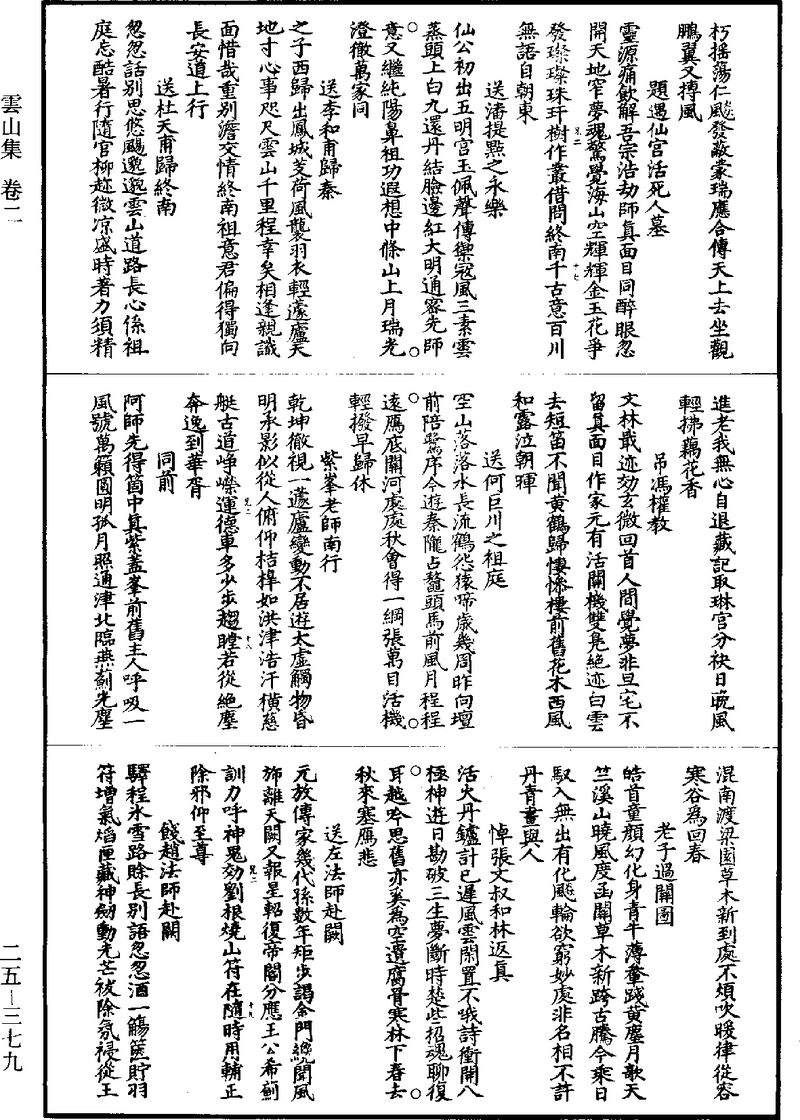 朽搖蕩仁颷發蔽蒙瑞應合傳天上去坐觀
鵬翼又摶風
題遇仙宮活死人墓
靈源痛飲解吾宗浩劫師眞面目同醉眼忽
開天地窄夢魂驚覺海山空輝輝金玉花爭
發璨璨珠玕樹作叢借問終南千古意百川
無語自朝東
送潘提點之永樂
仙公初出五明宮玉佩聲傳禦寇風三素雲
蒸頭上白九還丹結臉邊紅大明通密先師
意又繼純陽鼻祖功遐想中條山上月瑞光
澄徹萬家同
送李和甫歸秦
之子西歸出鳳城芰荷風襲羽衣輕蘧廬天
地寸心事咫尺雲山千里程幸矣相逢親識
面惜哉重别澹交情終南祖意君偏得獨向
長安道上行
送杜天甫歸終南
怱怱話别思悠颺邈邈雲山道路長心係祖
庭忘酷暑行隨官柳趂微凉盛時著力須精
進老我無心自退藏記取琳宮分袂日晚風
輕拂藕花香
弔馮權教
文林戢迹効玄微回首人間覺夢非旦宅不
留眞面目作家元有活關機雙鳧絶迹白雲
去短笛不聞黄鶴歸悽慘樓前舊花木西風
和露泣朝暉
送何巨川之祖庭
空山落落水長流鶴怨猿啼歲幾周昨向壇
前陪鷺序今遊秦隴占鼇頭馬前風月程程
遠鴈底關河處處秋會得一綱張萬目活機
輕撥早歸休
紫峯老師南行
乾坤徹視一蘧廬變動不居遊太虛觸物昏
明承影似從人俯仰桔橰如洪津浩汗横慈
艇古道崢嶸運德車多少步趨瞠若從絶塵
奔逸到華胥
同前
阿師先得箇中眞紫蓋峯前舊主人呼吸一
風號萬籟圓明孤月照通津北臨燕薊先塵
混南渡梁園草木新到處不煩吹暖律從容
寒谷爲回春
老子過關圖
皓首童顔幻化身青牛薄軬踐黄塵月歌天
竺溪山曉風度函關草木新跨古騰今乘日
馭入無出有化颷輪欲窮妙處非名相不許
丹青畫與人
悼張文叔和林返眞
活火丹鑪計已遲風雲閑置不哦詩衝開八
極神遊日勘破三生夢斷時楚些招魂聊復
耳越吟思舊亦奚爲空遺腐骨寒林下春去
秋來塞鴈悲
送左法師赴闕
元放傳家幾代孫數年矩步謁金門纔聞風
旆離天闕又報星軺復帝閽分應王公希薊
訓力呼神鬼効劉根燒山符在隨時用輔正
除邪仰至尊
餞趙法師赴闕
驛程氷雪路賒長别語怱怱酒一觴篋貯羽
符增氣焰匣藏神劒動光芒祓除氛祲從王
雲山集　卷二
二五—三七九